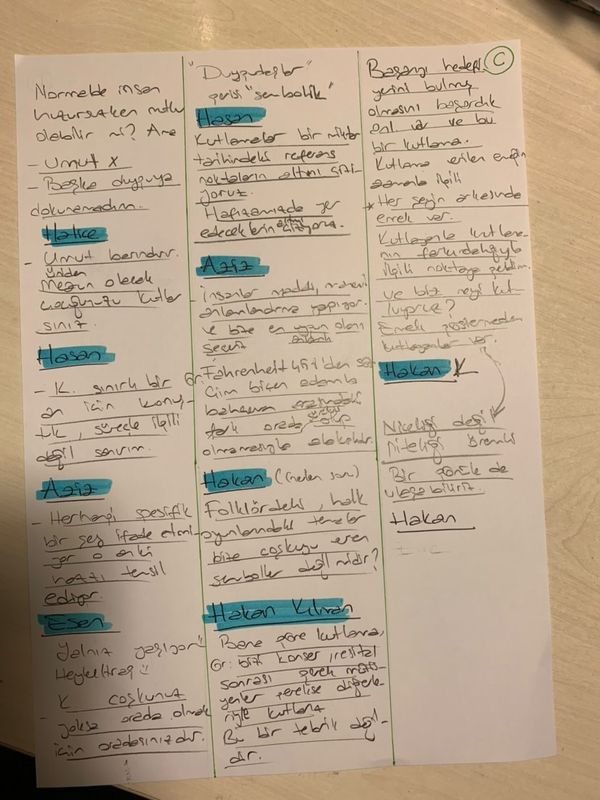 Normalde insan
huzursuzken mutlu
olabilir mi? Ama
- Umut x
- Başka duyguya
dokunamadım.
Hatice
- Umut barındırır.
Mezun olacak
çocuğunuzu kutlar
sınız.
Hasan
- K. sınırlı bir
an için konuş-
tuk, süreçle ilgili
değil sanırım.
Aziz
- Herhangi spesifik
bir şey ifade etmi-
yor o anki
temsil
ediyor.
Esen
Yalnız yaşıyor
Heykeltraş
K coşkunuz
yoksa orada olmak
için oradasınızdır.
"Duygudaşlar"
"sembolik"
Hasan
Kutlamalar bir
tarihindeki referans
noktaların altını çizi-
yoruz.
Hafızamızda yer
edeceklerin altını çiziyoruz.
Aziz
- İnsanlar maddi, manevi
anlamlandırma yapıyor.
ve bize en uygun olanı
seçeriz
Ör: Fahrenheit 451'den
Çim biçen adamla
bahçıvan arasındaki
fark orada
olmamasıyla alakalıdır.
Hakan (neden
Folklördeki, halk
oyunlarındaki temalar
bize coşkuyu veren
semboller değil midir?
Hakan Kılman
Bana göre kutlama,
Ör: bir konser, resital
sonrası gerek
yenler gerekse diğerle-
riyle kutlama
Bu bir tebrik değil-
dir.
C
Başarıyı
yerini bulmuş
olmasını başardık
ve bu
bir kutlama.
Kutlama verilen emeğin
zamanla ilgili
* Her şeyin arkasında
emek var.
Kutlayanla kutlana-
nın farkındalığıyla
ilgili noktaya geldim.
ve biz neyi kut
luyoruz?
Emek göstermeden
kutlayanlar var.
Hakan K
Niceliği değil
Niteliği önemli
Bir çocuk de
ulaşabiliriz.
Hakan